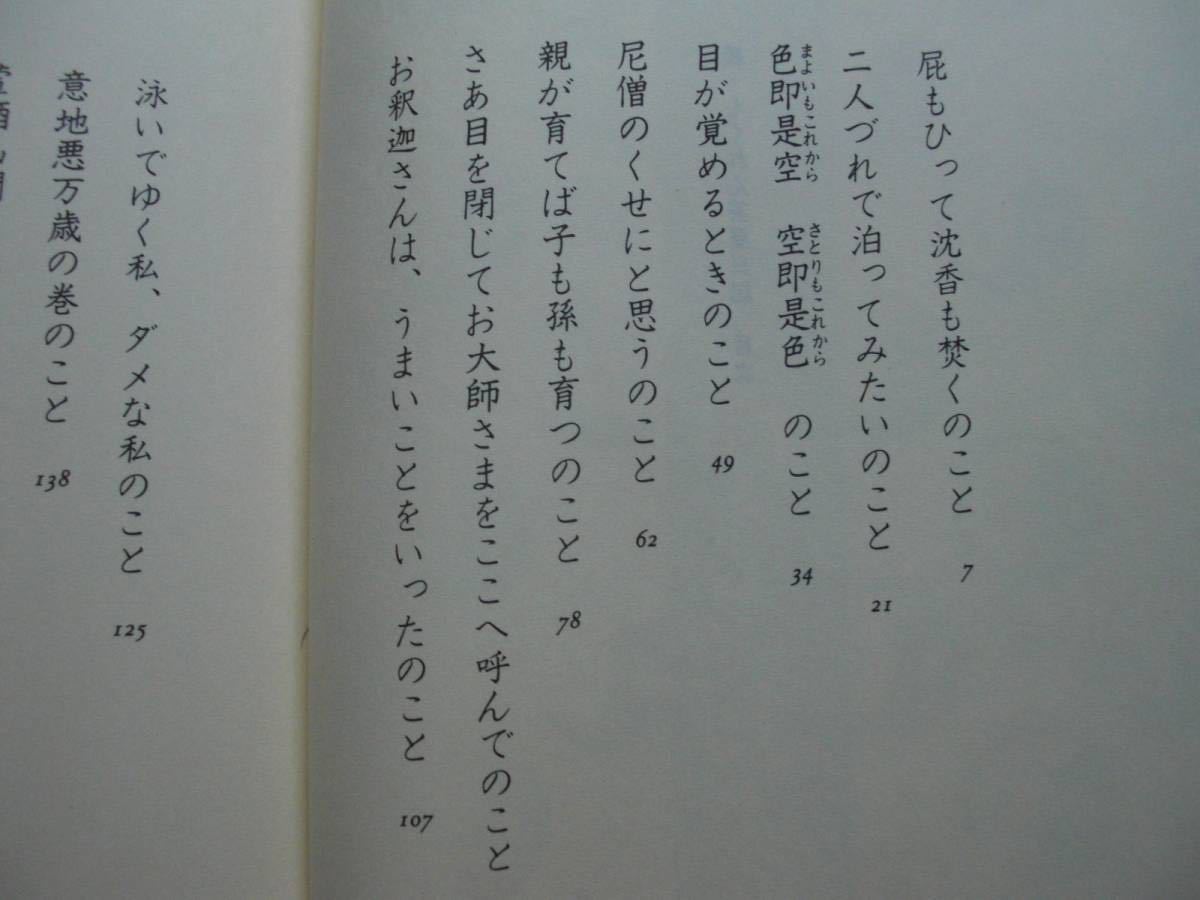 屁もひって沈香も焚くのこと 7
二人づれで泊ってみたいのこと 21
色即是空 空即是色 のこと 34
まよいもこれから さとりもこれから
目が覚めるときのこと 49
尼僧のくせにと思うのこと 62
親が育てば子も孫も育つのこと 78
さあ目を閉じてお大師さまをここへ呼んでのこと
お釈迦さんは、うまいことをいったのこと 107
泳いでゆく私、ダメな私のこと 125
意地悪万歳の巻のこと 138